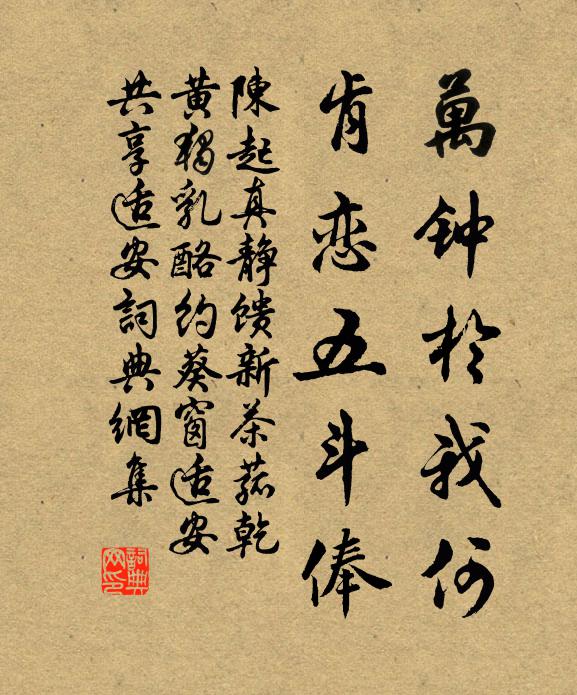 萬钟於我何
肯恋五斗俸
陳起真静馈新茶菰乾
黄獨乳酪約葵窗适安
共享适安詞典網集
詞典网印